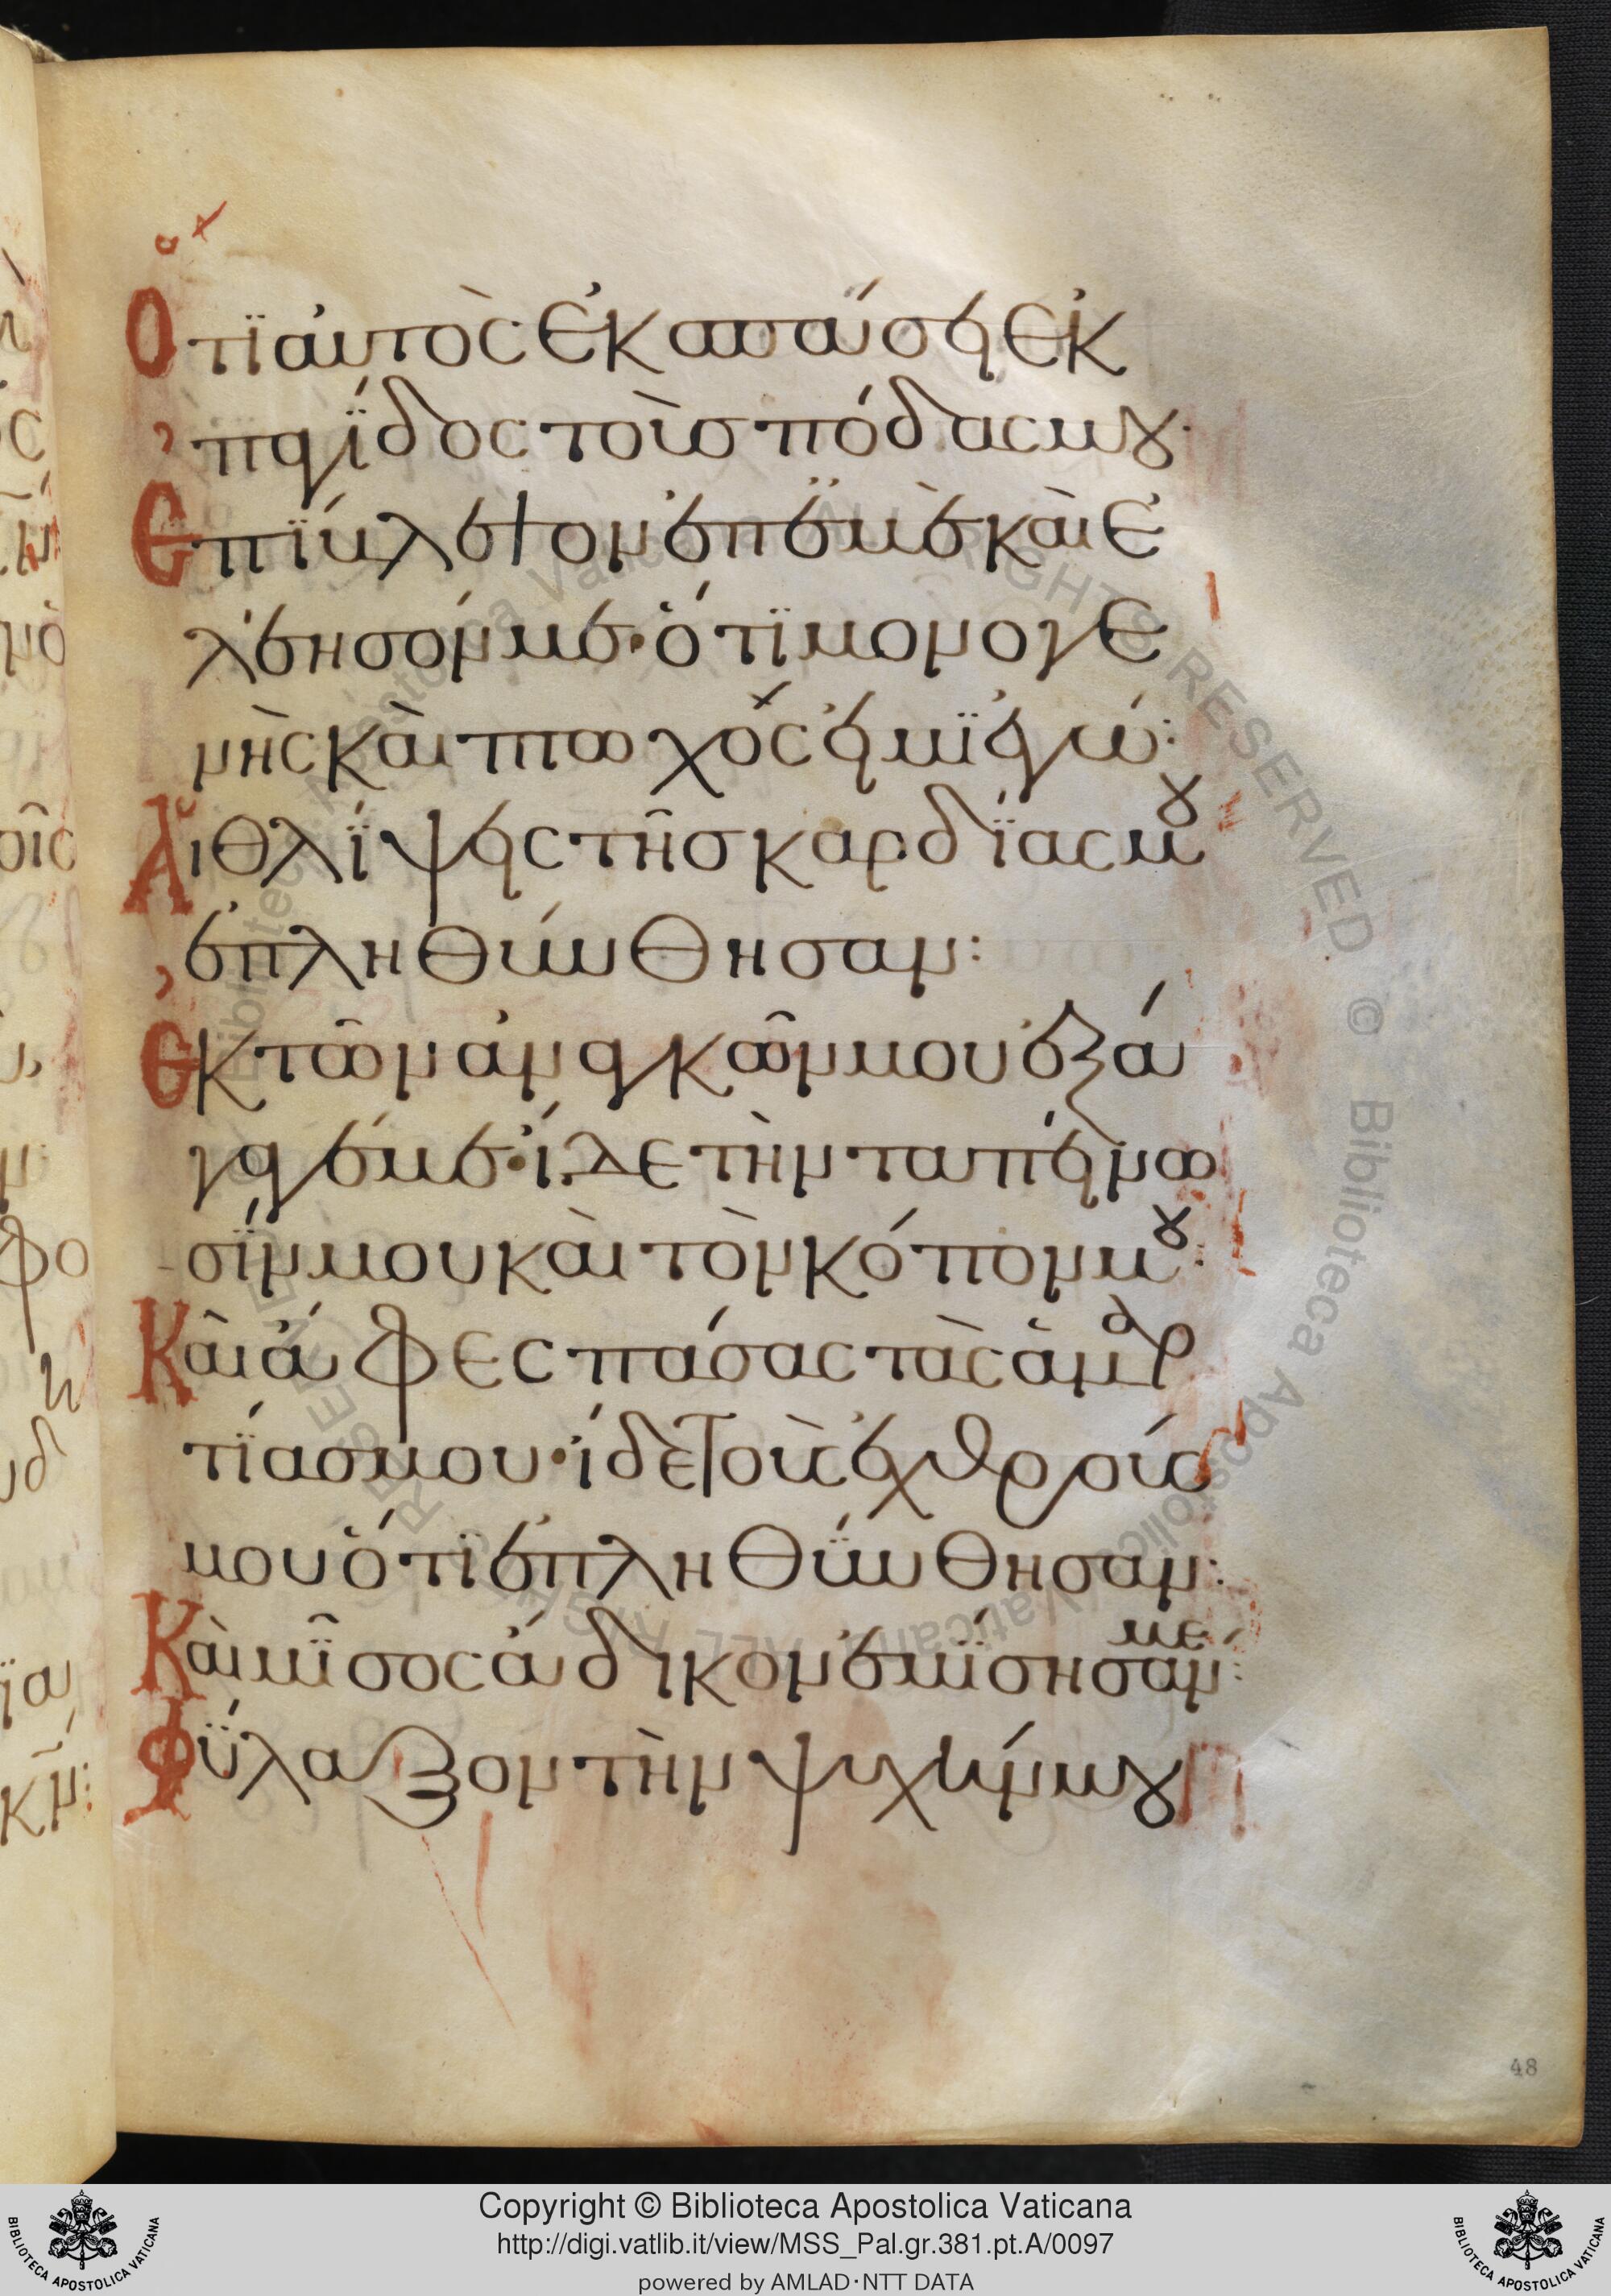 Ὅτϊ ἀυτὸς ἐκσπάσει ἐκ
παγίδος τοὺσ πόδας μου·
Ἐπίβλεψον ἐπ ἐμὲ καὶ ἐ
λέησόν με· ὅτϊ μονογε
νὴς καὶ πτωχός ειμϊ ἐγώ:
Ἁι θλίψεις τῆσ καρδΐας μου
ἐπληθύνθησαν:
Ἐκ τῶν ἀναγκῶν μου ἐξά
γαγέ με· ἴδε τὴν ταπείνω
σΐν μου καὶ τὸν κόπον μου:
Καὶ ἄφες πάσας τὰς ἁμαρ
τΐασ μου· ἴδε τοὺς ἐχθρούσ
μου ὅτϊ ἐπληθύνθησαν:
Καὶ μῖσος ἄδικον ἐμΐσησαν με:
Φύλαξον τὴν ψυχήν μου
48
Copyright © Biblioteca Apostolica Vaticana
http://digi.vatlib.it/view/MSS_Pal.gr.381.pt.A/0097
powered by AMLAD·NTT DATA
BIBLIOTECA APOSTOLICA VATICANA
BIBLIOTECA APOSTOLICA VATICANA